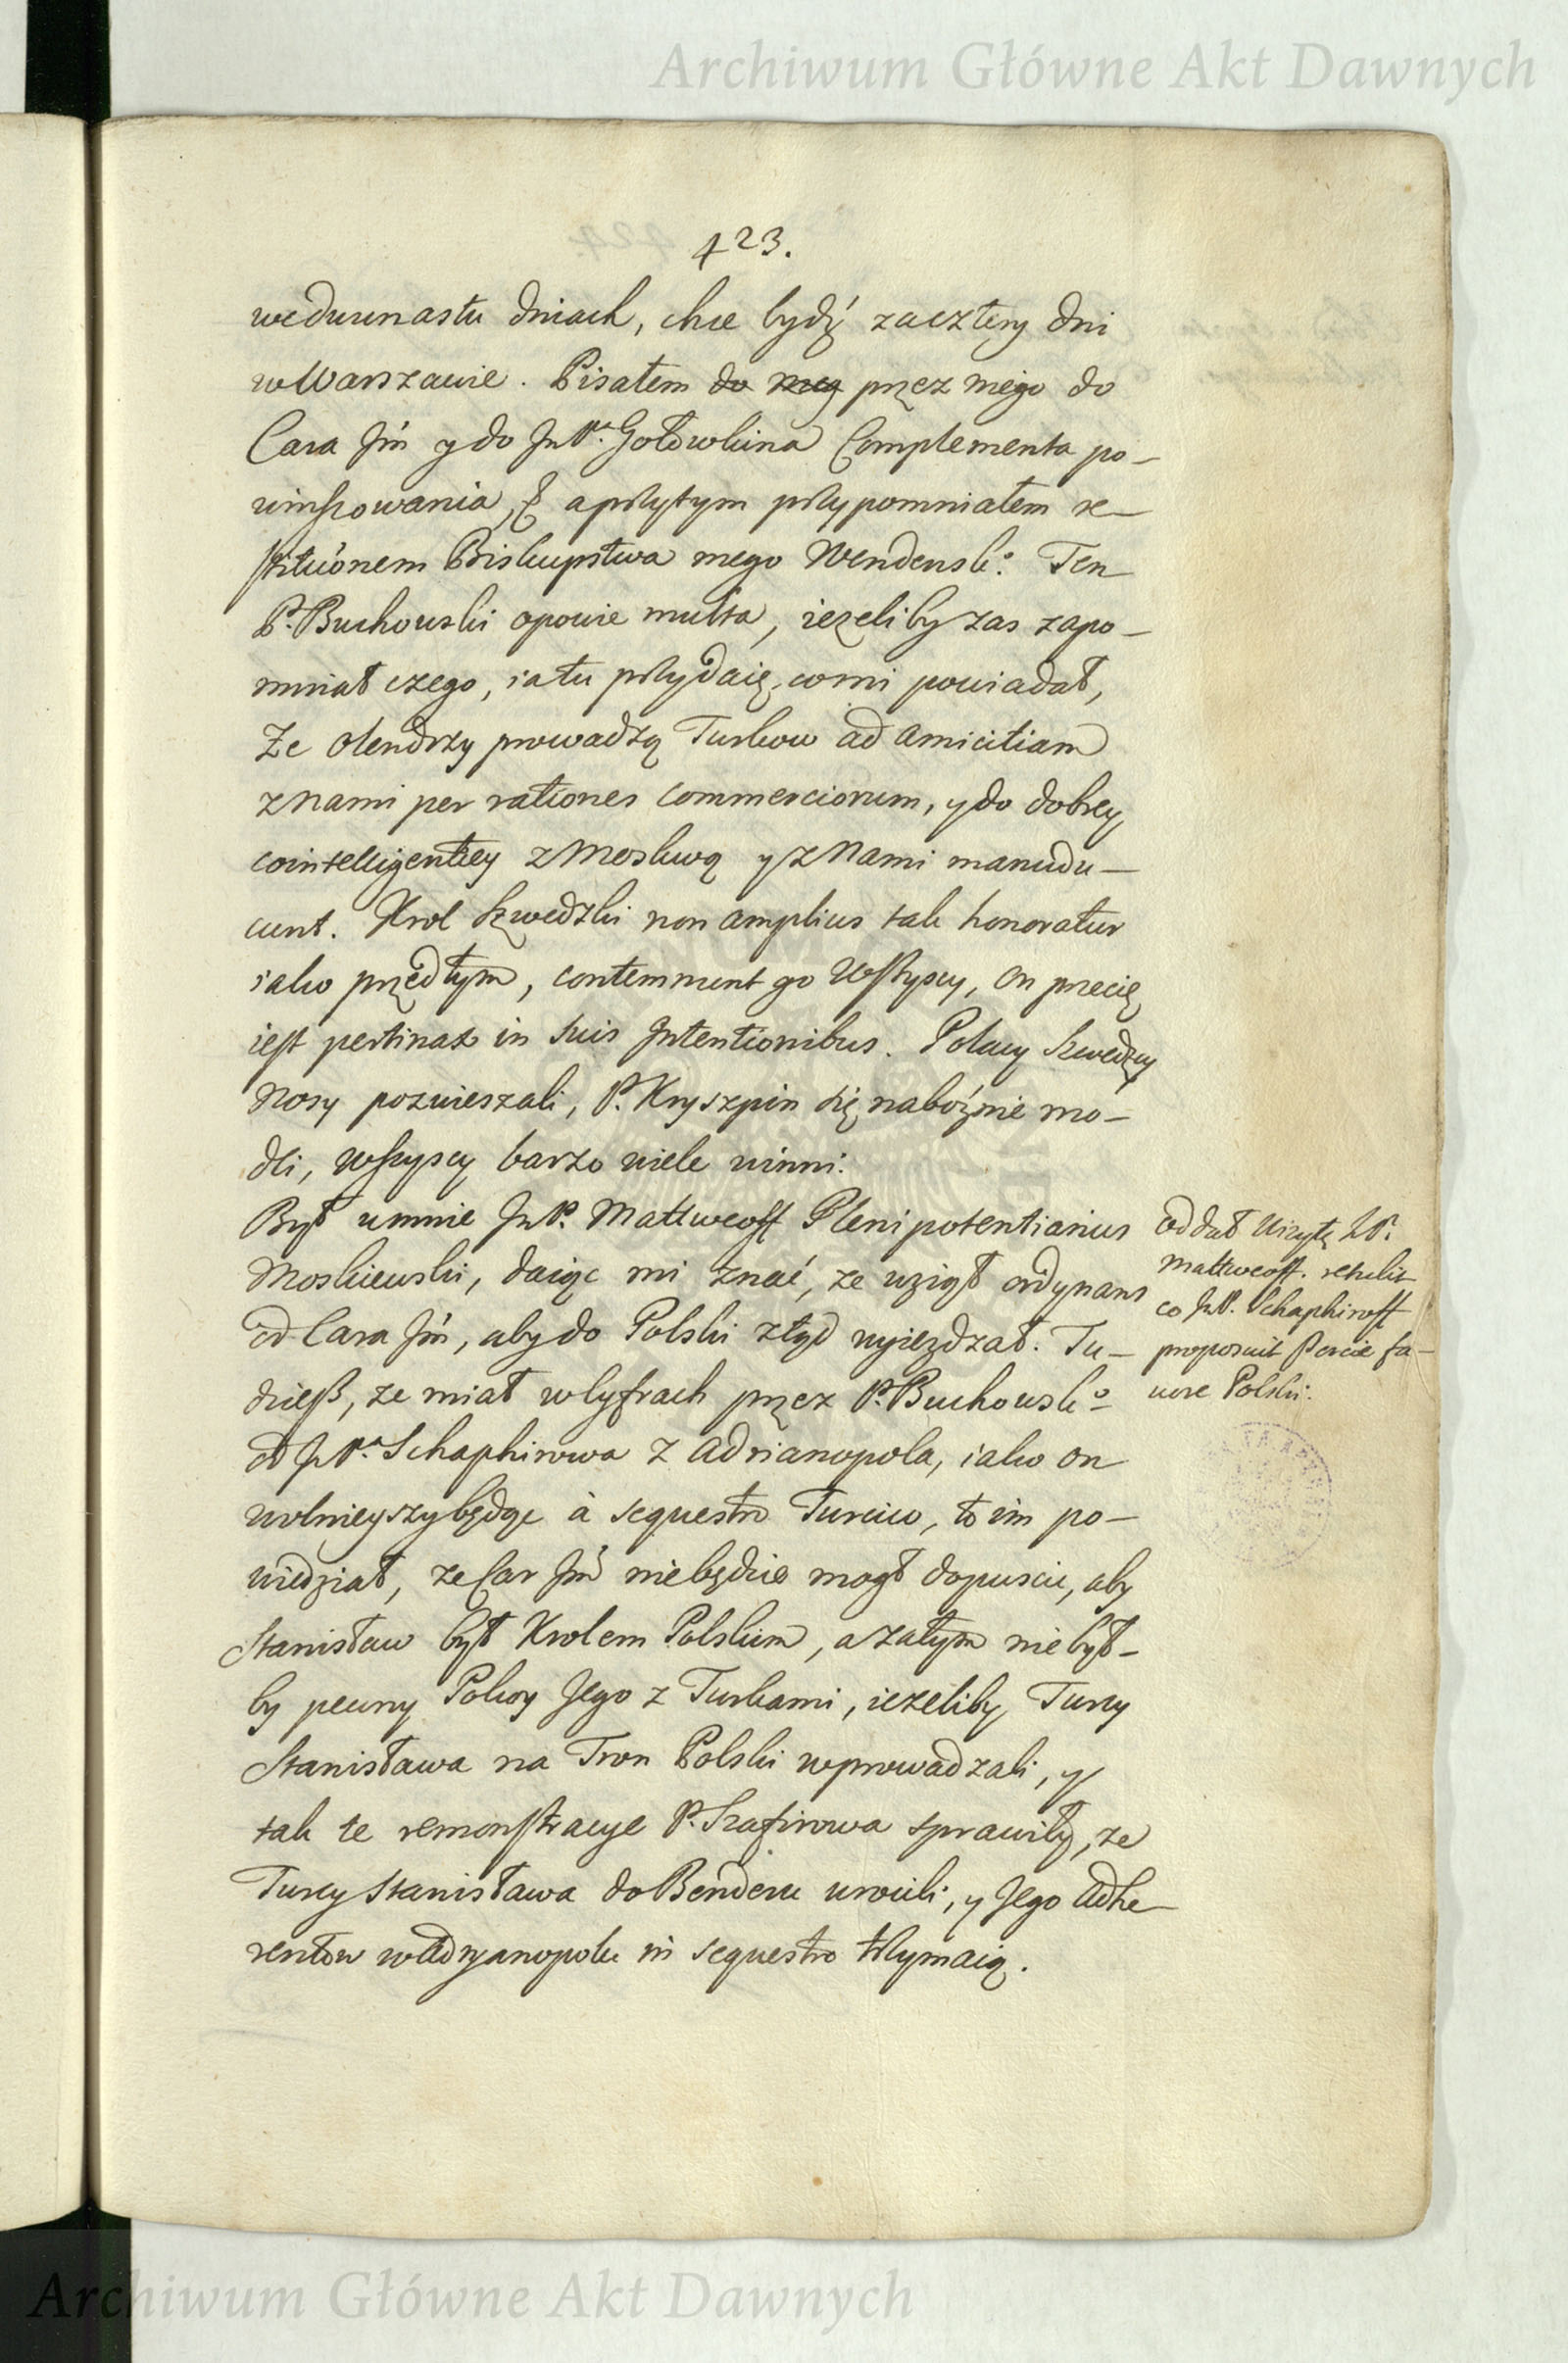 Archiwum Główne Akt Dawnych
423.
wedwunastu dniach, chce bydź zacztery dni
wWarszawie. Pisałem do meg przez niego do
Cara Jm y do JnP.ͣ Gołowkina Complementa po-
winszowania, & aprzytym przypomniałem re-
stitūonem Biskupstwa mego Wendensk.º Ten
P. Buchowski opowie multa, ieżeliby zas zapo-
mniał czego, ia tu przydaię, co mi powiadał,
Że Olendrzy prowadzą Turkow ad amicitiam
z nami per rationes commerciorum, y do dobrey
cointelligentiey z Moskwą y z Nami manudu-
cunt. Krol Szwedzki non amplius tak honoratur
iako przedtym, contemnunt go wszyscy, on przecię
iest pertinax in suis Intentionibus. Polacy Szwedzcy
Nosy pozwieszali, P. Kryszpin się nabożnie mo-
dli, wszyscy barzo wiele winni.
Był umnie JnP. Mattweoff Plenipotentiarius
Moskiewski, daiąc mi znać, że wziął ordynans
od Cara Jm, aby do Polski ztąd wyieżdzał. Tu-
dzieß, że miał wCyfrach przez P. Buchowsk.º
od JnP.ͣ Schaphirowa z Adrianopola, iako on
wolnieyszy będąc à sequestro Turcico, to im po-
wiedział, że Car Jm niebędzie mogł dopuscic, aby
Stanisław był Krolem Polskim, a zatym nie był-
by pewny Pokoy Jego z Turkami, ieżeliby Turcy
Stanisława na Tron Polski wprowadzali, y
tak te remonstracye P. Szafirowa sprawiły, że
Turcy Stanisława do Benderu wrocili, y Jego Adhe-
rentow wAdryanopolu in sequestro trzymaią.
oddał wizytę JnP.
Mattweoff. retulit
co JnP. Schaphiroff
proposuit Porcie fa-
vore Polski.
Archiwum Główne Akt Dawnych